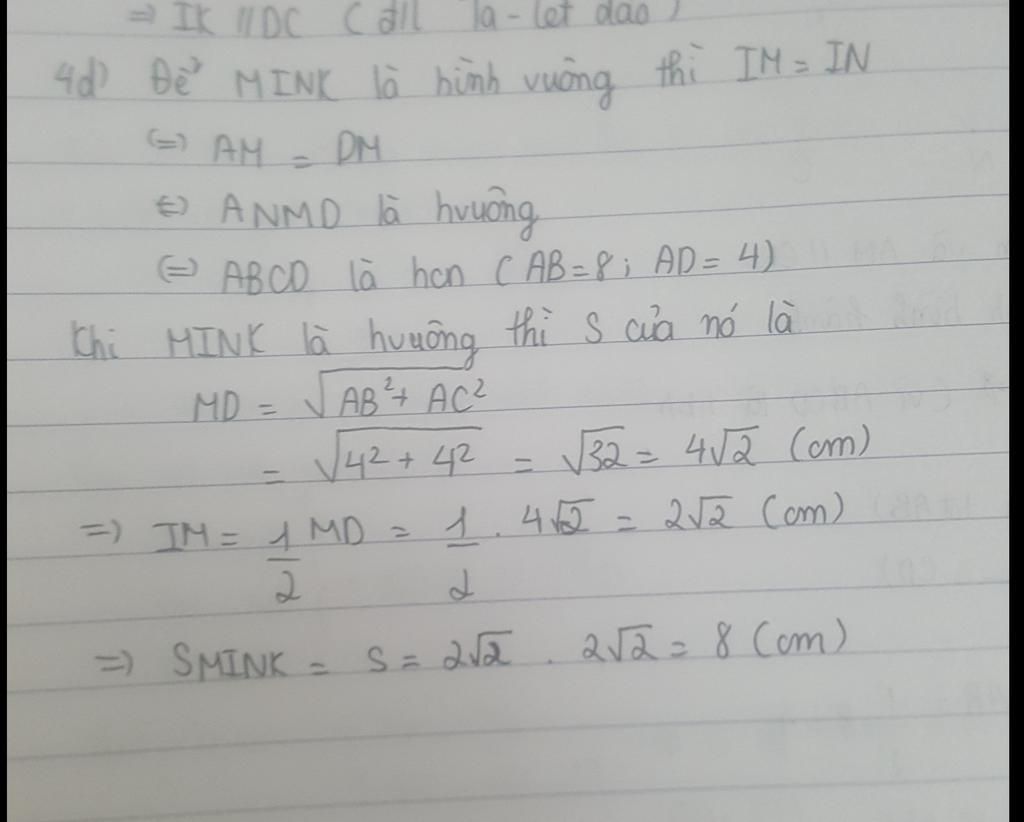 => IK // DC (đ/l Ta-let đảo)
4d) Để MINK là hình vuông thì IM = IN
<=> AM = DM
<=> ANMD là hvuông
<=> ABCD là hcn (AB=8; AD=4)
Khi MINK là hvuông thì S của nó là
MD = √AB²+ AC²
= √4² + 4² = √32 = 4√2 (cm)
=> IM = 1/2 MD = 1/2 . 4√2 = 2√2 (cm)
=> SMINK = S = 2√2 . 2√2 = 8 (cm)